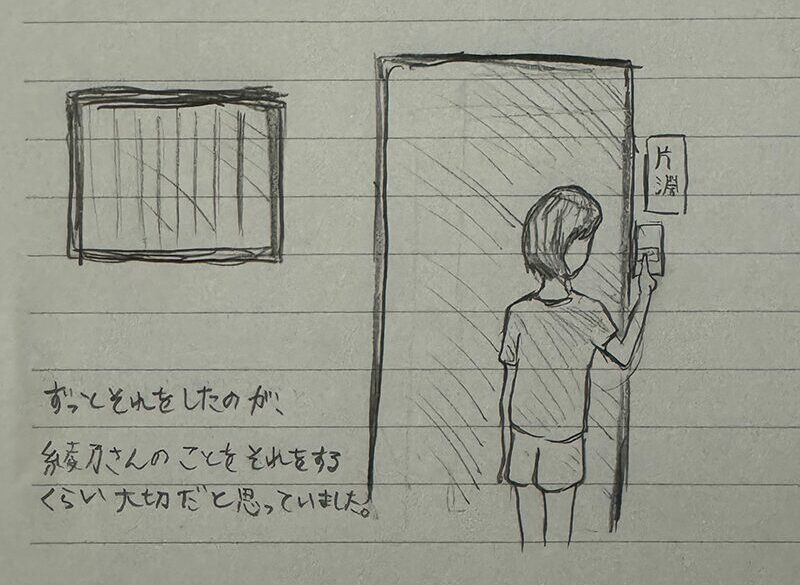 片淵
ずっとそれをしたのが、
綾乃さんのことをそれをする
くらい大切だと思っていました。